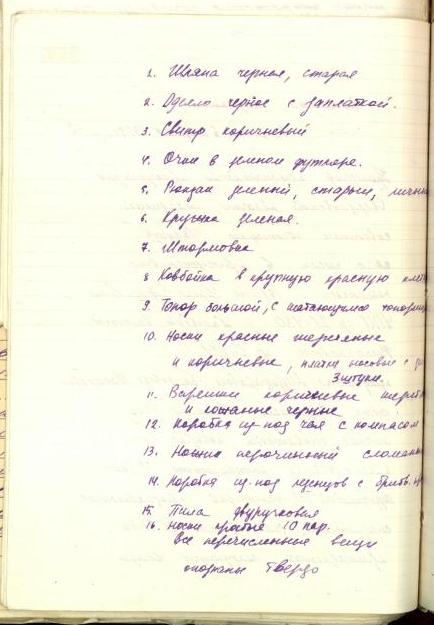 1. Шляпа черная, старая
2. Одеяло черное с заплаткой.
3. Свитр коричневый
4. Очки в зеленом футляре.
5. Рюкзак зеленый, старый,
6. Кружка зеленая.
7. Штормовка
8 Ковбойка в крупную красную
9. Топор большой, с шатающимся
10. Носки красные шерстяные
и коричневые, платки носовые с
3 штуки.
11. Варежки коричневые
и кожаные черные
12. Коробка из-под чая с компасом
13. Ножик перочинный
14. Коробка из-под леденцов с
15. Пила двуручковая
16. Носки 10 пар.
все перечисленные вещи
опознаны твердо